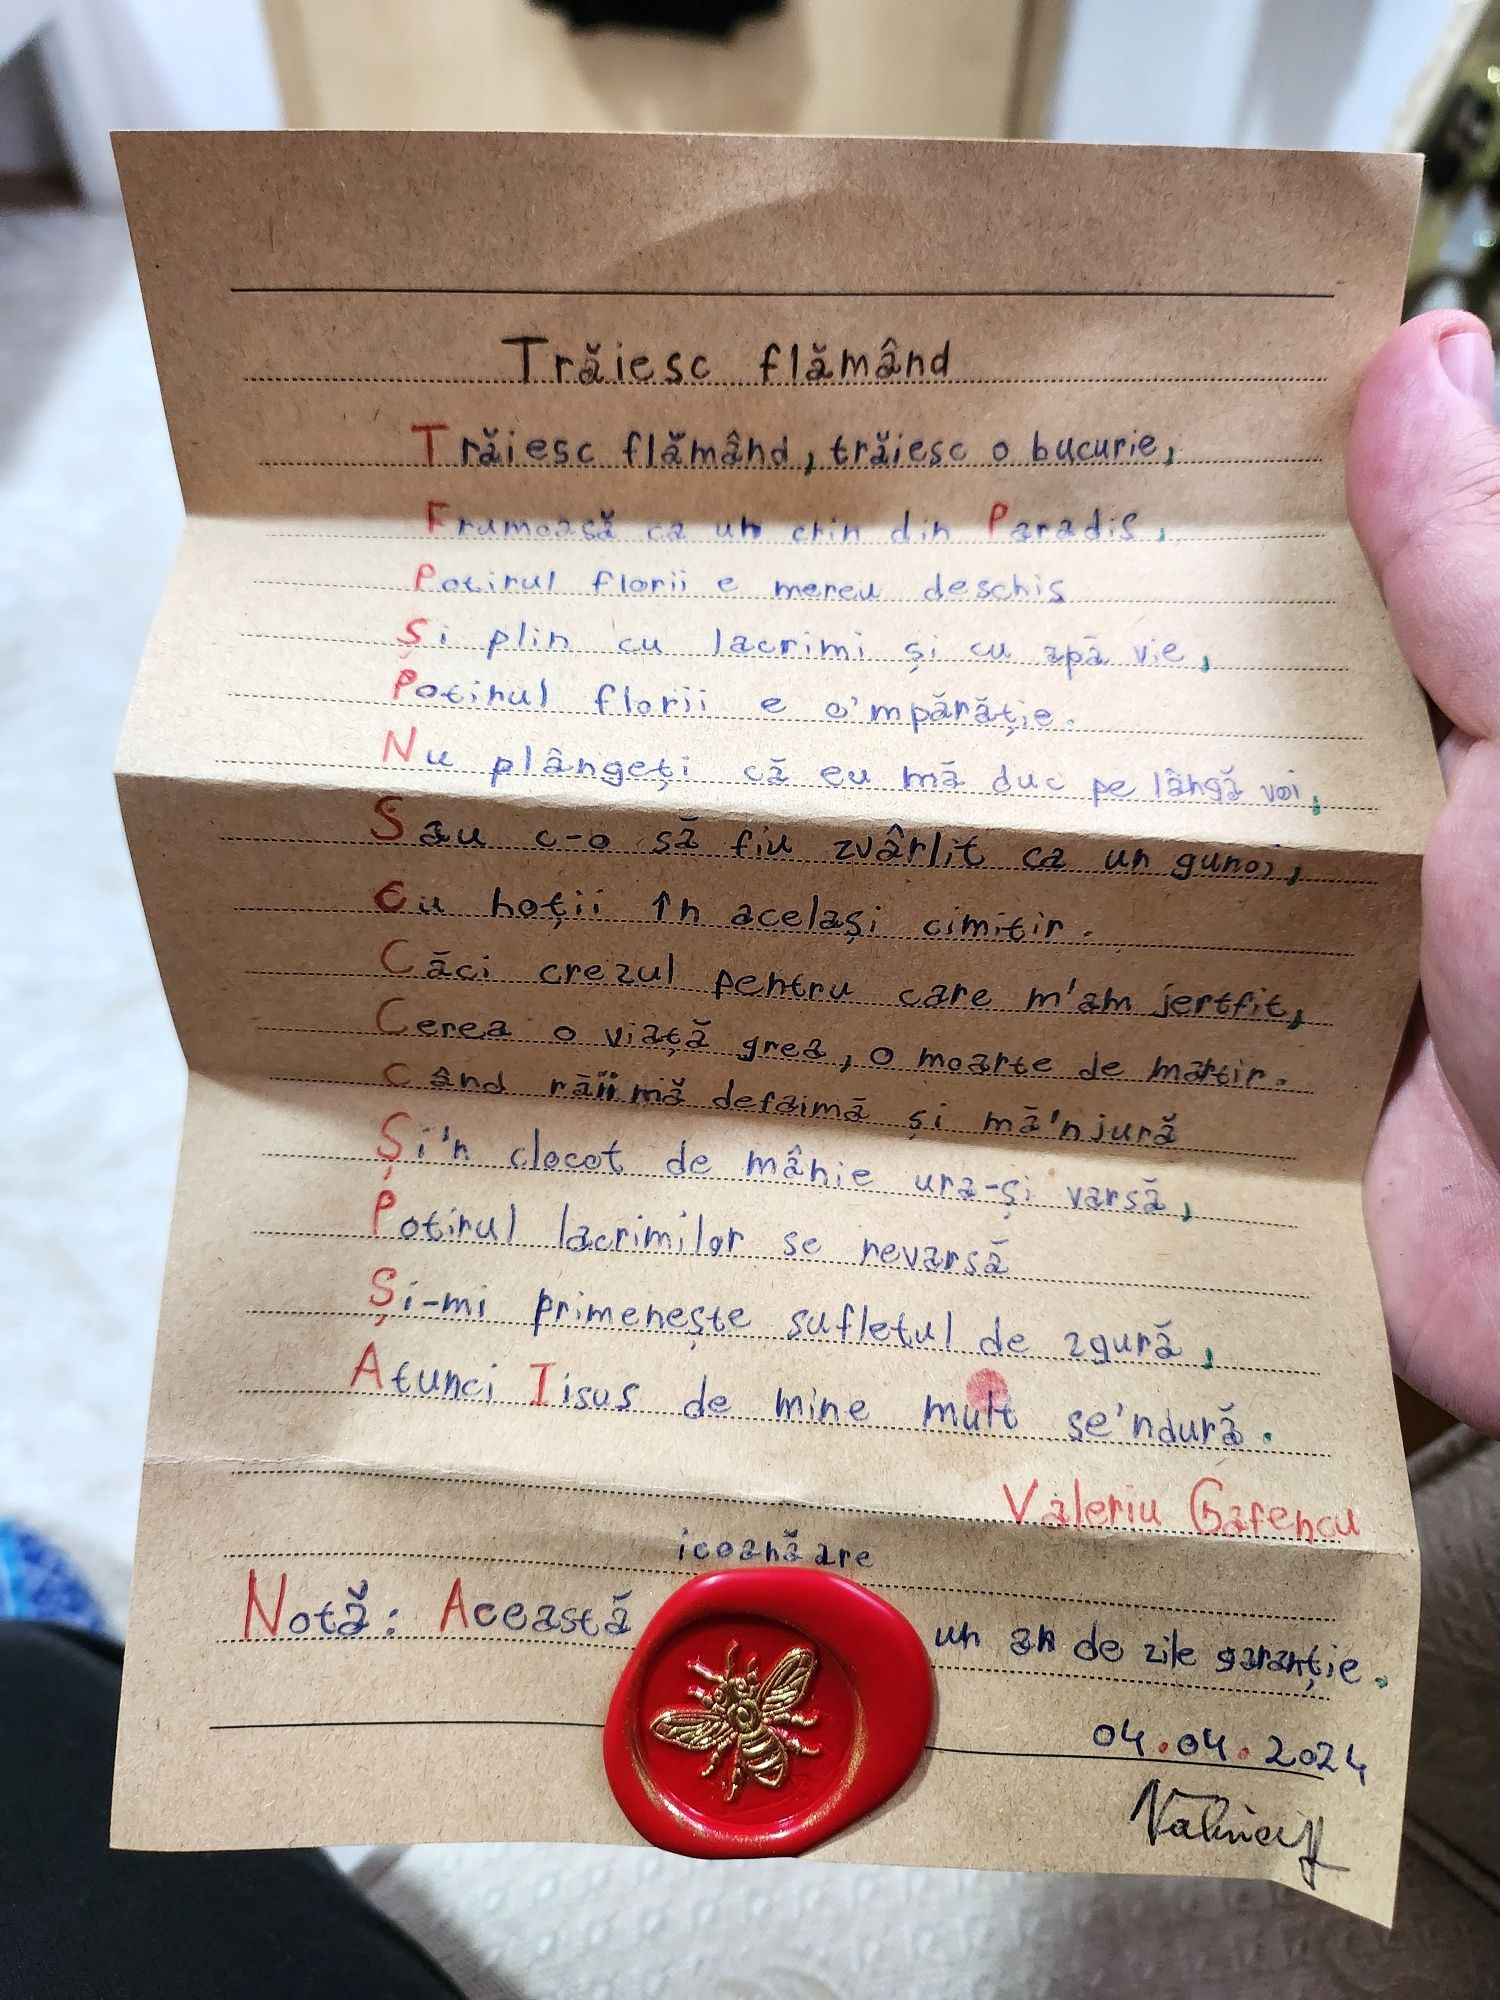 Trăiesc flămând
Trăiesc flămând, trăiesc o bucurie,
Frumoasă ca un crin din Paradis,
Potirul florii e mereu deschis
Și plin cu lacrimi și cu apă vie,
Potirul florii e o'mpărăție.
Nu plângeți că eu mă duc pe lângă voi,
Sau c-o să fiu zvârlit ca un gunoi,
Cu hoții în același cimitir.
Căci crezul pentru care m'am jertfit,
Cerea o viață grea, o moarte de martir.
Când răii mă defaimă și mă'njură
Și'n clocot de mânie ura-și varsă,
Potirul lacrimilor se revarsă
Și-mi primenește sufletul de zgură,
Atunci Iisus de mine mult se'ndură.
Valeriu Gafencu
icoană are
Notă: Această un an de zile garanție.
04.04.2024